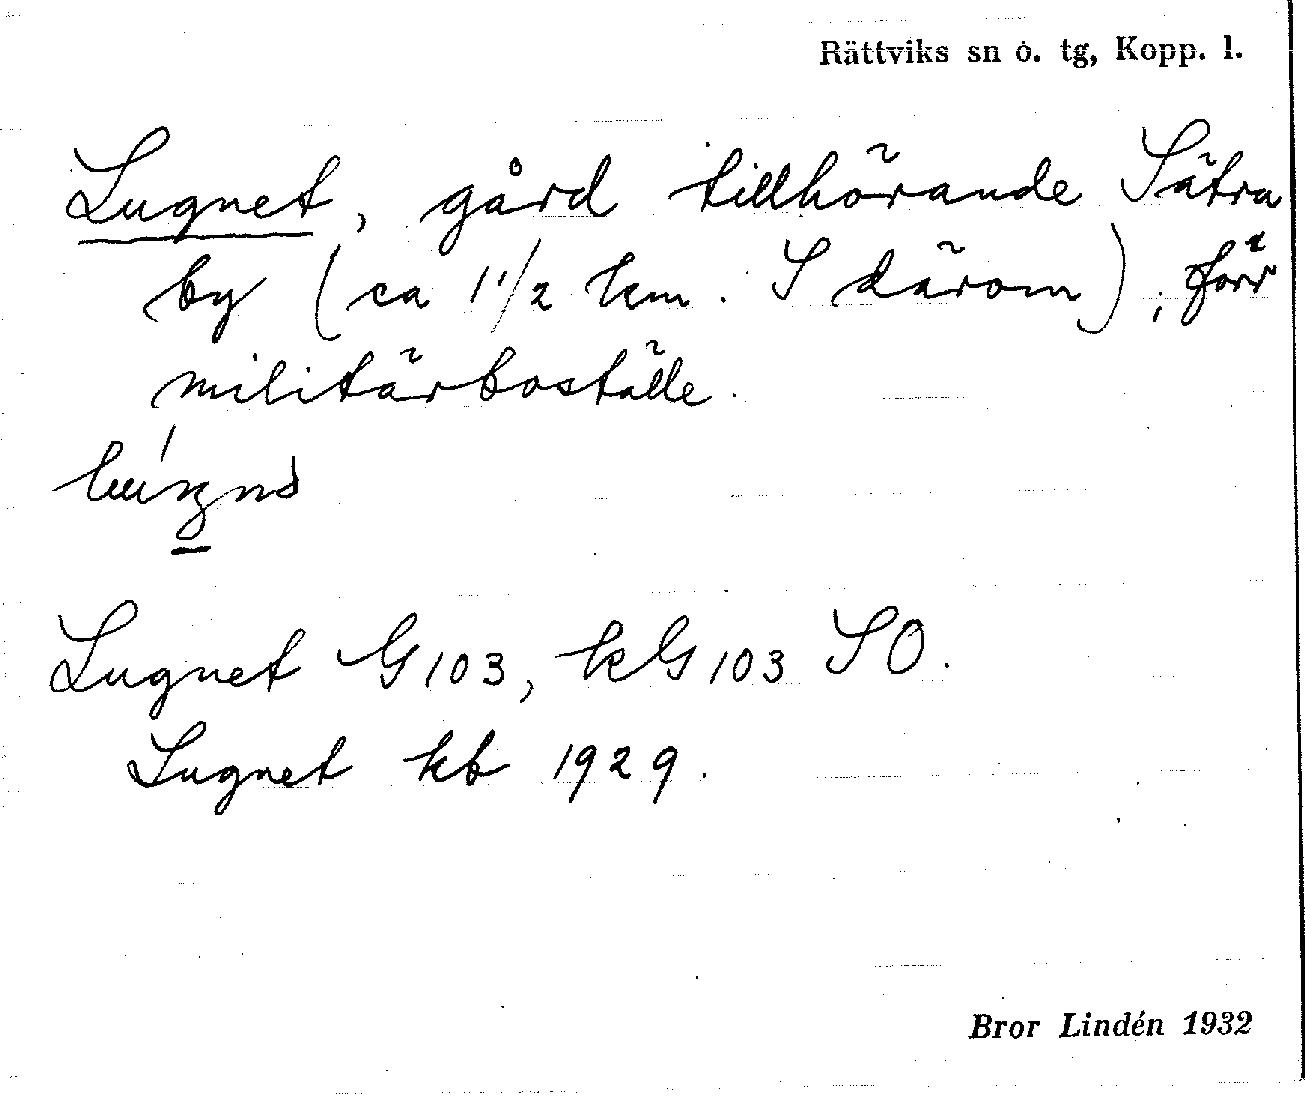 Rättviks sn o. tg, Kopp. l.
Lugnet, gård tillhörande Sätra
by (ca 1 1/2 km. S därom), förr
militärboställe.
Lugnet G 103, kG 103 SO.
Lugnet kb 1929.
Bror Lindén 1932